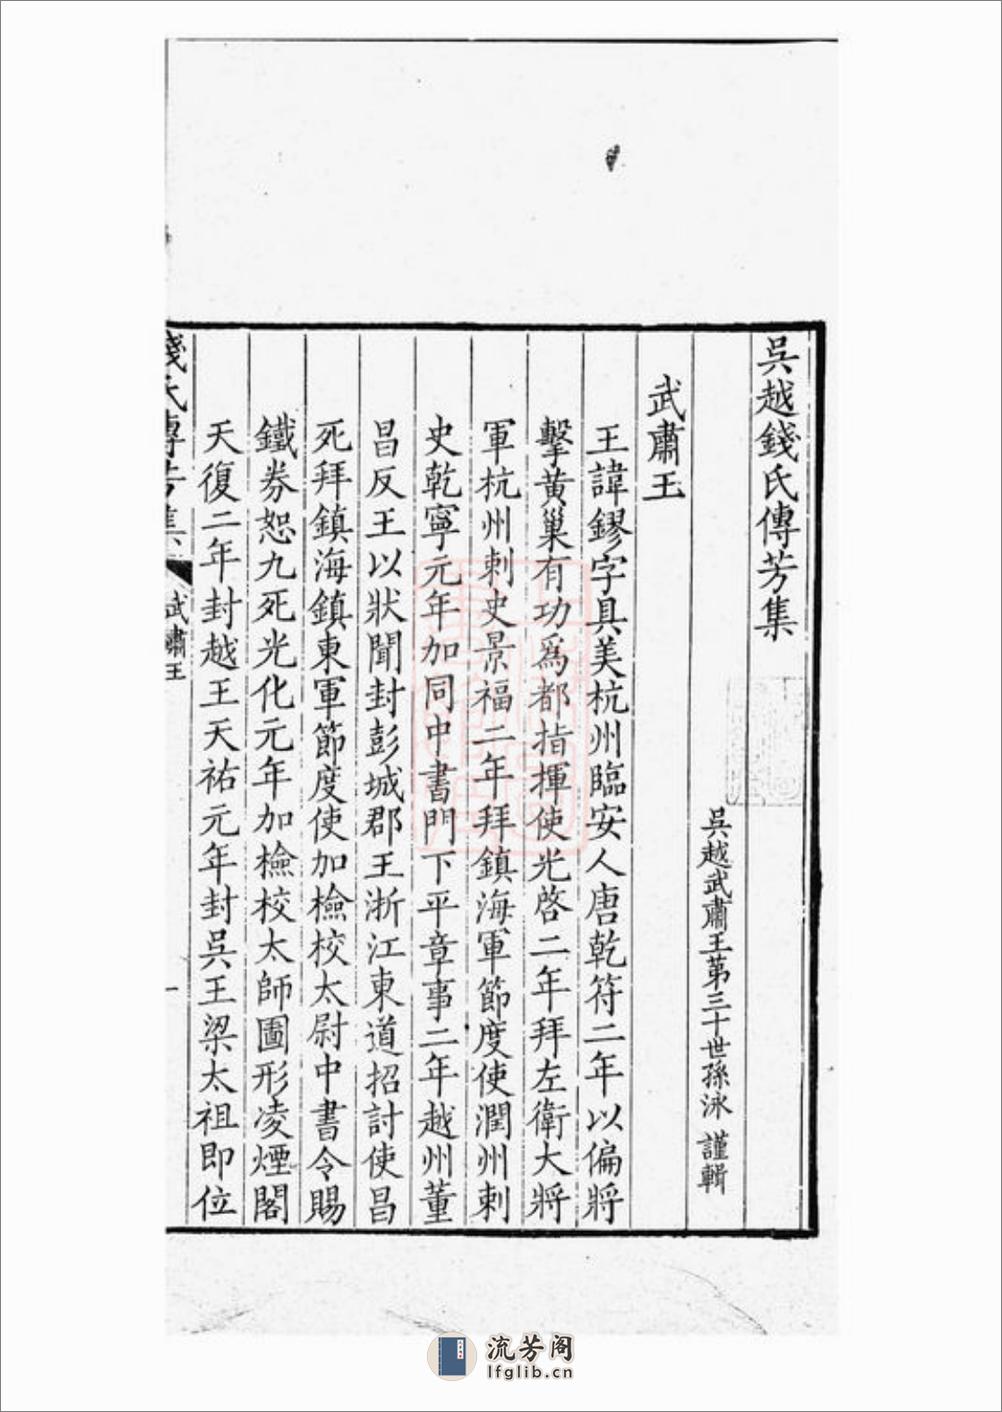 吳越錢氏傳芳集
吳越武肅王第三十世孫泳 謹輯
武肅王
王諱鏐字具美杭州臨安人唐乾符二年以偏將
擊黃巢有功爲都指揮使光啓二年拜左衛大將
軍杭州刺史景福二年拜鎮海軍節度使潤州刺
史乾寧元年加同中書門下平章事二年越州董
昌反王以狀聞封彭城郡王浙江東道招討使昌
死拜鎮海鎮東軍節度使加檢校太尉中書令賜
鐵券恕九死光化元年加檢校太師圖形凌煙閣
天復二年封越王天祐元年封吳王梁太祖即位
錢氏傳芳集 武肅王 一
流芳阁
lfglib.cn